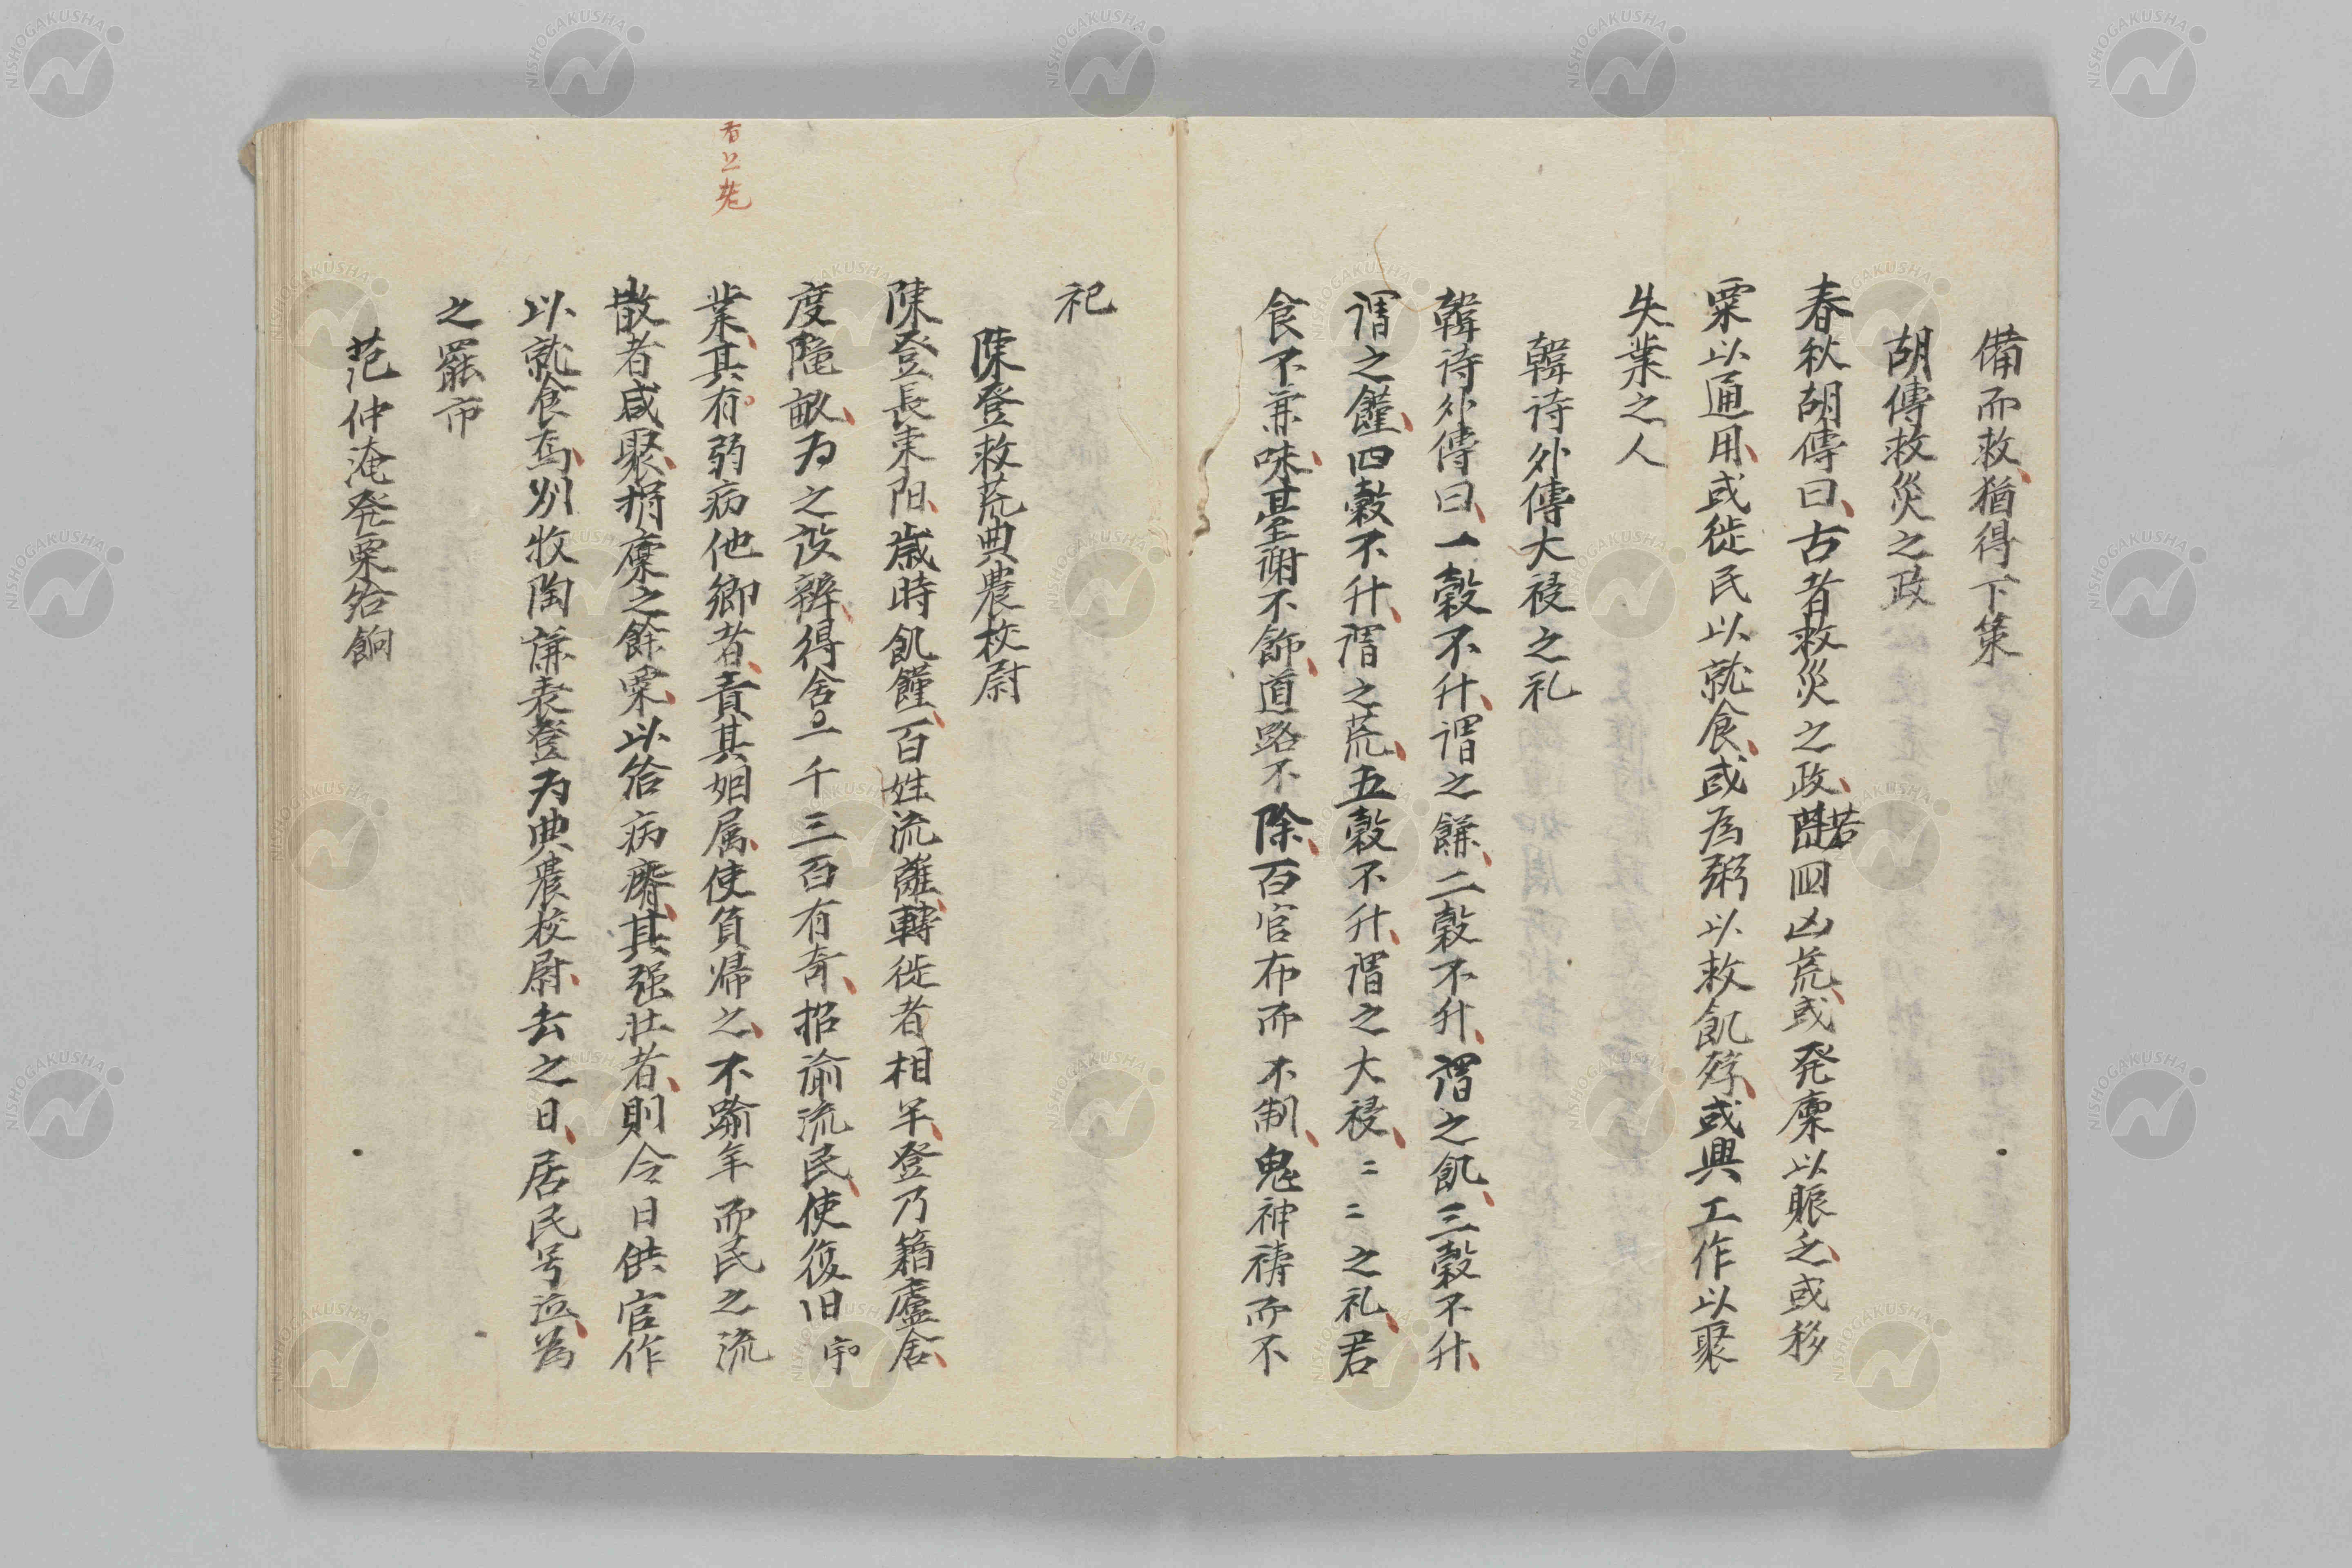 備而救、猶得下策
胡傳救災之政
春秋胡傳曰、古者救災之政、若囯凶荒、或発廩以賑乏、或移
粟以通用、或徙民以就食、或為粥以救飢殍、或興工作以聚
失業之人
韓诗外傳大祲之礼
韓诗外傳曰、一穀不升、謂之餅、二穀不升、謂之飢、三穀不升、
謂之饉、四穀不升、謂之荒、五穀不升、謂之大祲、〻〻之礼、君
食不兼味、䑓謝不飾、道路不除、百官布而不制、鬼神祷而不
祀
陳登救荒典農校尉
陳登長東阳、歳時飢饉、百姓流離、轉徙者相半、登乃籍廬舍、
度隴畝、为之设辨、得舍一千三百有奇、招谕流民、使復旧
業、其有弱病他郷者、責其姻属、使負帰之、不踰年而民之流
散者咸聚、捐廩之餘粟、以给病瘠、其强壮者、則令日供官作
以就食焉、别牧陶谦表登为典農校尉、去之日、居民号泣、為
之罷市
范仲淹発粟给餉
看上巻
NISHOGAKUSHA